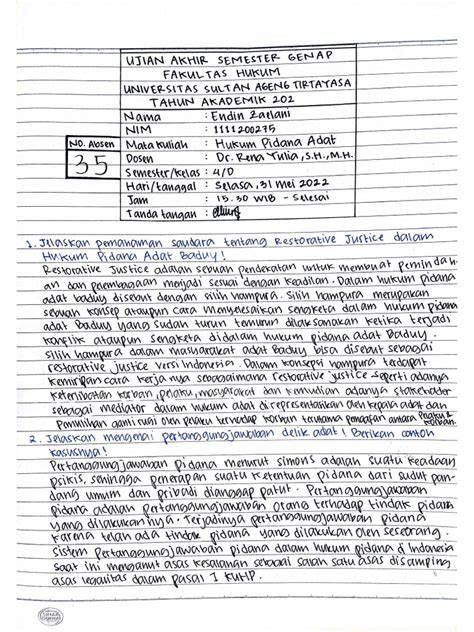 UJIAN AKHIR SEMESTER GENAP
FAKULTAS HUKUM
UNIVERSITAS SULTAN AGENG TIRTAYASA
TAHUN AKADEMIK 202
Nama : Endin Zaelani
NIM : 1111200275
No. Absen
35
Mata Kuliah : Hukum Pidana Adat
Dosen : Dr. Rena Yulia, S.H., M.H.
Semester/Kelas : 4/D
Hari/tanggal : Selasa, 31 Mei 2022
Jam : 15.30 WIB - Selesai
Tanda tangan :
1. Jelaskan pemahaman saudara tentang Restorative Justice dalam
Hukum Pidana Adat Baduy!
Restorative Justice adalah sebuah pendekatan untuk membuat pemindah
an dan penembagaan menjadi sesuai dengan keadilan. Dalam hukum pidana
adat baduy disebut dengan silih hampura. Silih hampura merupakan
sebuah konsep ataupun cara menyelesaikan sengketa dalam hukum pidana
adat Baduy yang sudah turun temurun dilaksanakan ketika terjadi
konflik ataupun sengketa didalam hukum pidana adat Baduy.
Silih hampura dalam masyarakat adat Baduy bisa disebut sebagai
restorative justice versi Indonesia. Dalam konsep hampura terdapat
kemiripan cara kerja nya sebagaimana restorative justice seperti adanya
keterlibatan korban, pelaku, masyarakat dan kemudian adanya stakeholder
sebagai mediator dalam hukum adat direpresentatifkan oleh kepala adat dan
Pemulihan ganti rugi oleh pelaku terhadap korban terutama pemaafan antara Pelaku & korban.
2. Jelaskan mengenai pertanggungjawaban delik adat! Berikan contoh
kasusnya!
Pertanggungjawaban pidana menurut simons adalah suatu keadaan
psikis, sehingga penerapan suatu ketentuan pidana dari sudut pan-
dang umum dan pribadi dianggap patut. Pertanggungjawaban
pidana adalah pertanggungjawaban orang terhadap tindak pidana
yang dilakukannya. Terjadinya pertanggungjawaban pidana
karena telah ada tindak pidana yang dilakukan oleh seseorang.
Sistem Pertanggungjawaban pidana dalam hukum pidana di Indonesia
saat ini menganut asas kesalahan sebagai salah satu asas disamping
asas legalitas dalam pasal 1 KUHP.